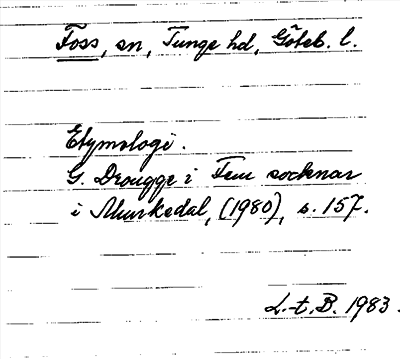 Foss, sn, Tunge hd, Göteb. l.
Etymologi.
G. Drougge i Fem socknar
i Munkedal, (1980), s. 157.
L-t. B. 1983.